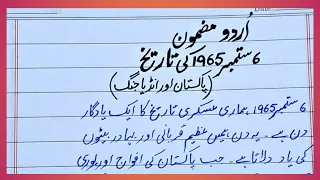 اُردو مضمون
6 ستمبر 1965 کی تاریخ
(پاکستان اور انڈیا جنگ)
6 ستمبر 1965 ہماری عسکری تاریخ کا ایک یادگار
دن ہے۔ یہ دن ہمیں عظیم قربانی اور بہادر بیٹوں
کی یاد دلاتا ہے۔ جب پاکستان کی افواج اور پوری